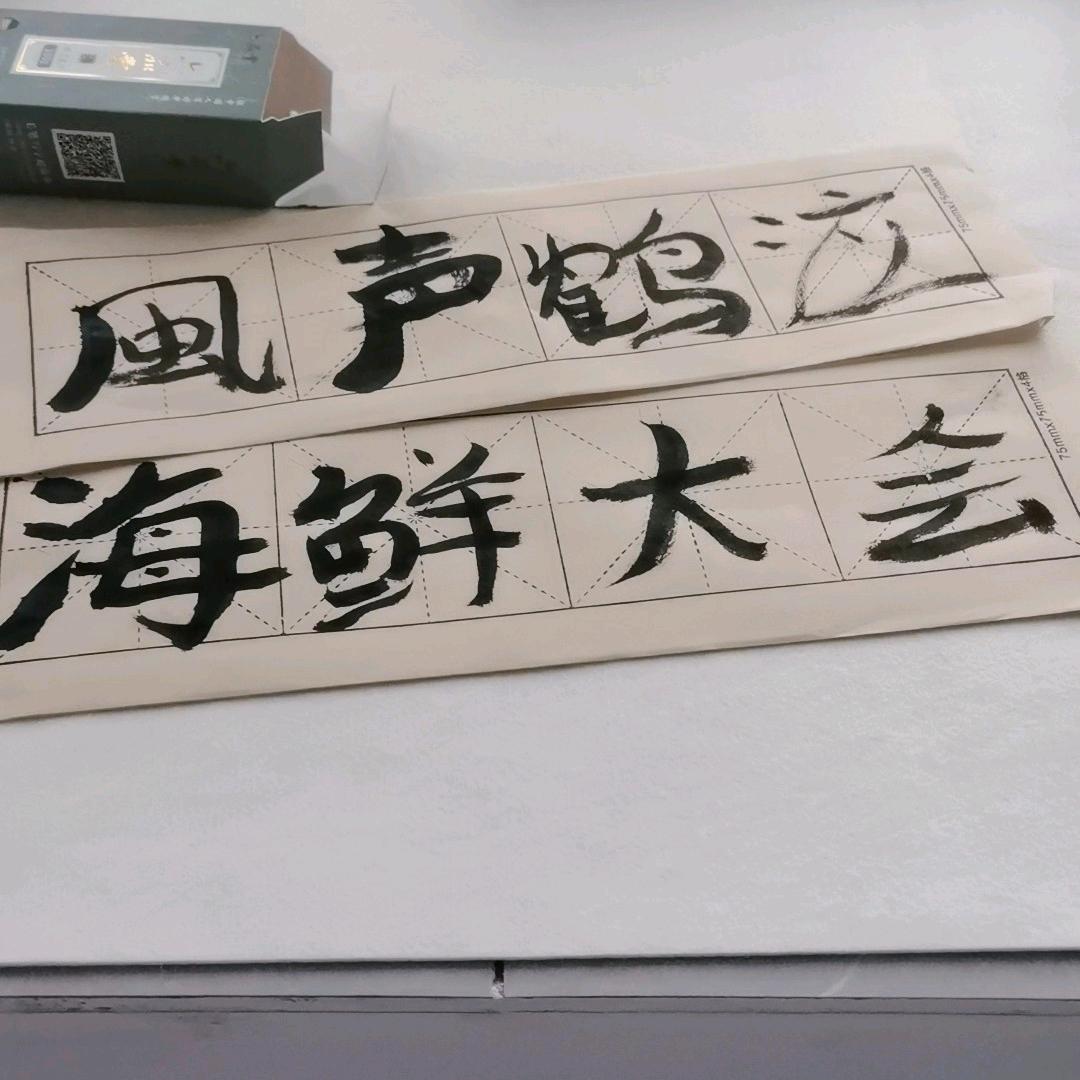 風声鹤泣
75mmx75mmx4格
海鲜大会
75mmx75mmx4格